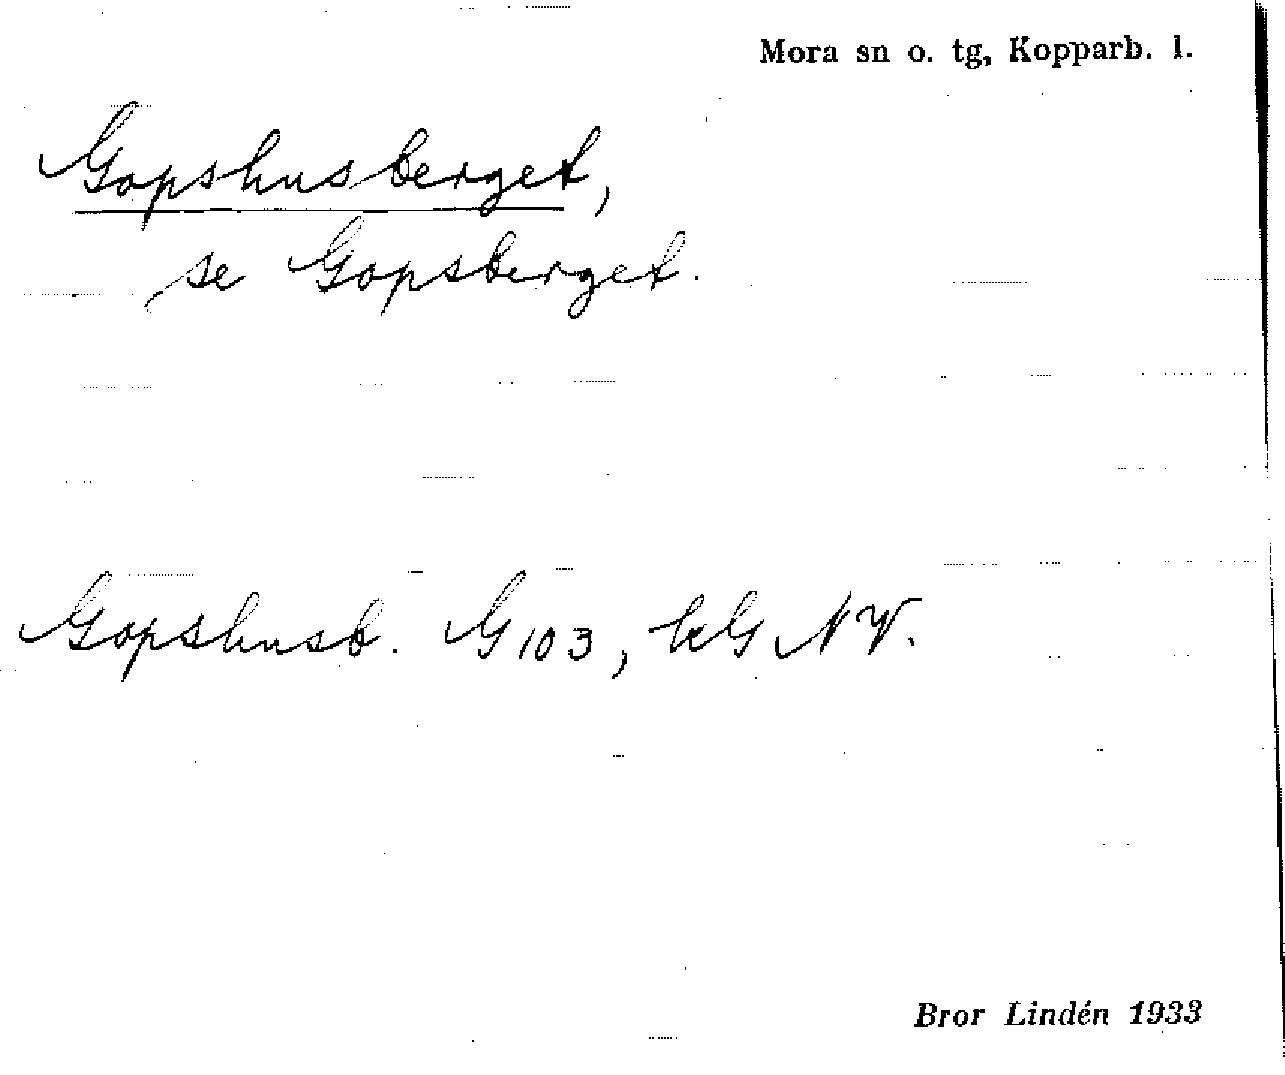 Mora sn o. tg, Kopparb. l.
Gopshusberget,
se Gopsberget.
Gopshusb. G103, kG NV.
Bror Lindén 1933